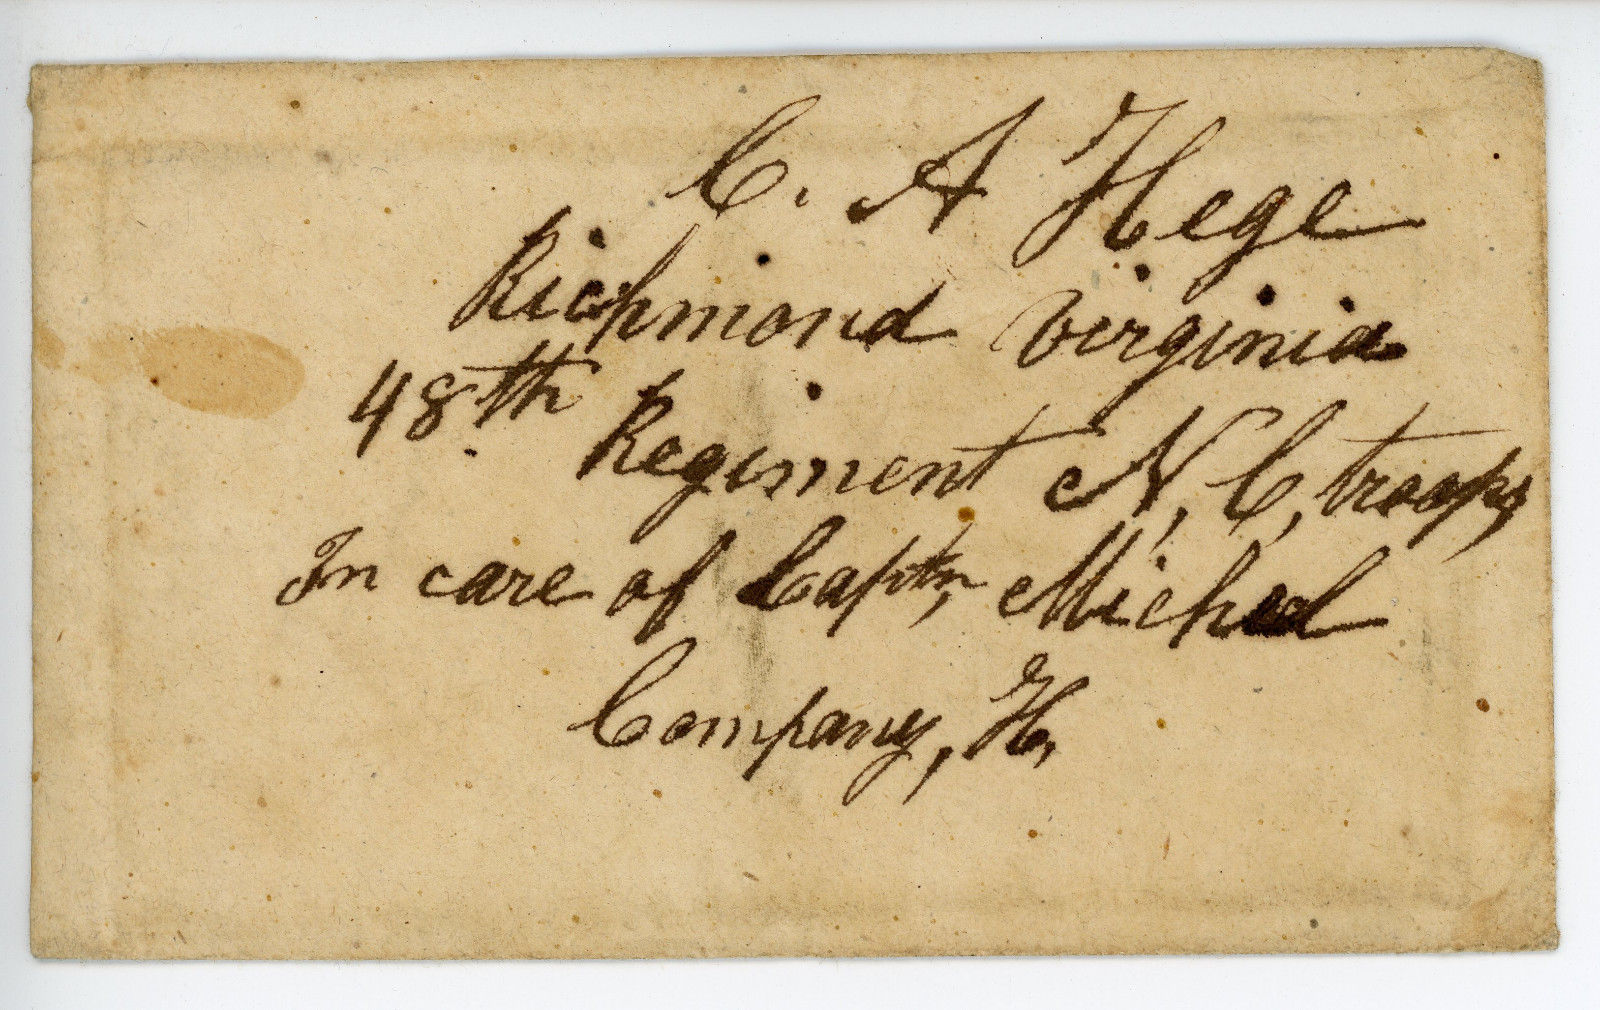 C. A Hege
Richmond Virginia
48th Regiment N, C, troops,
In care of Captn, Michael
Company, H,